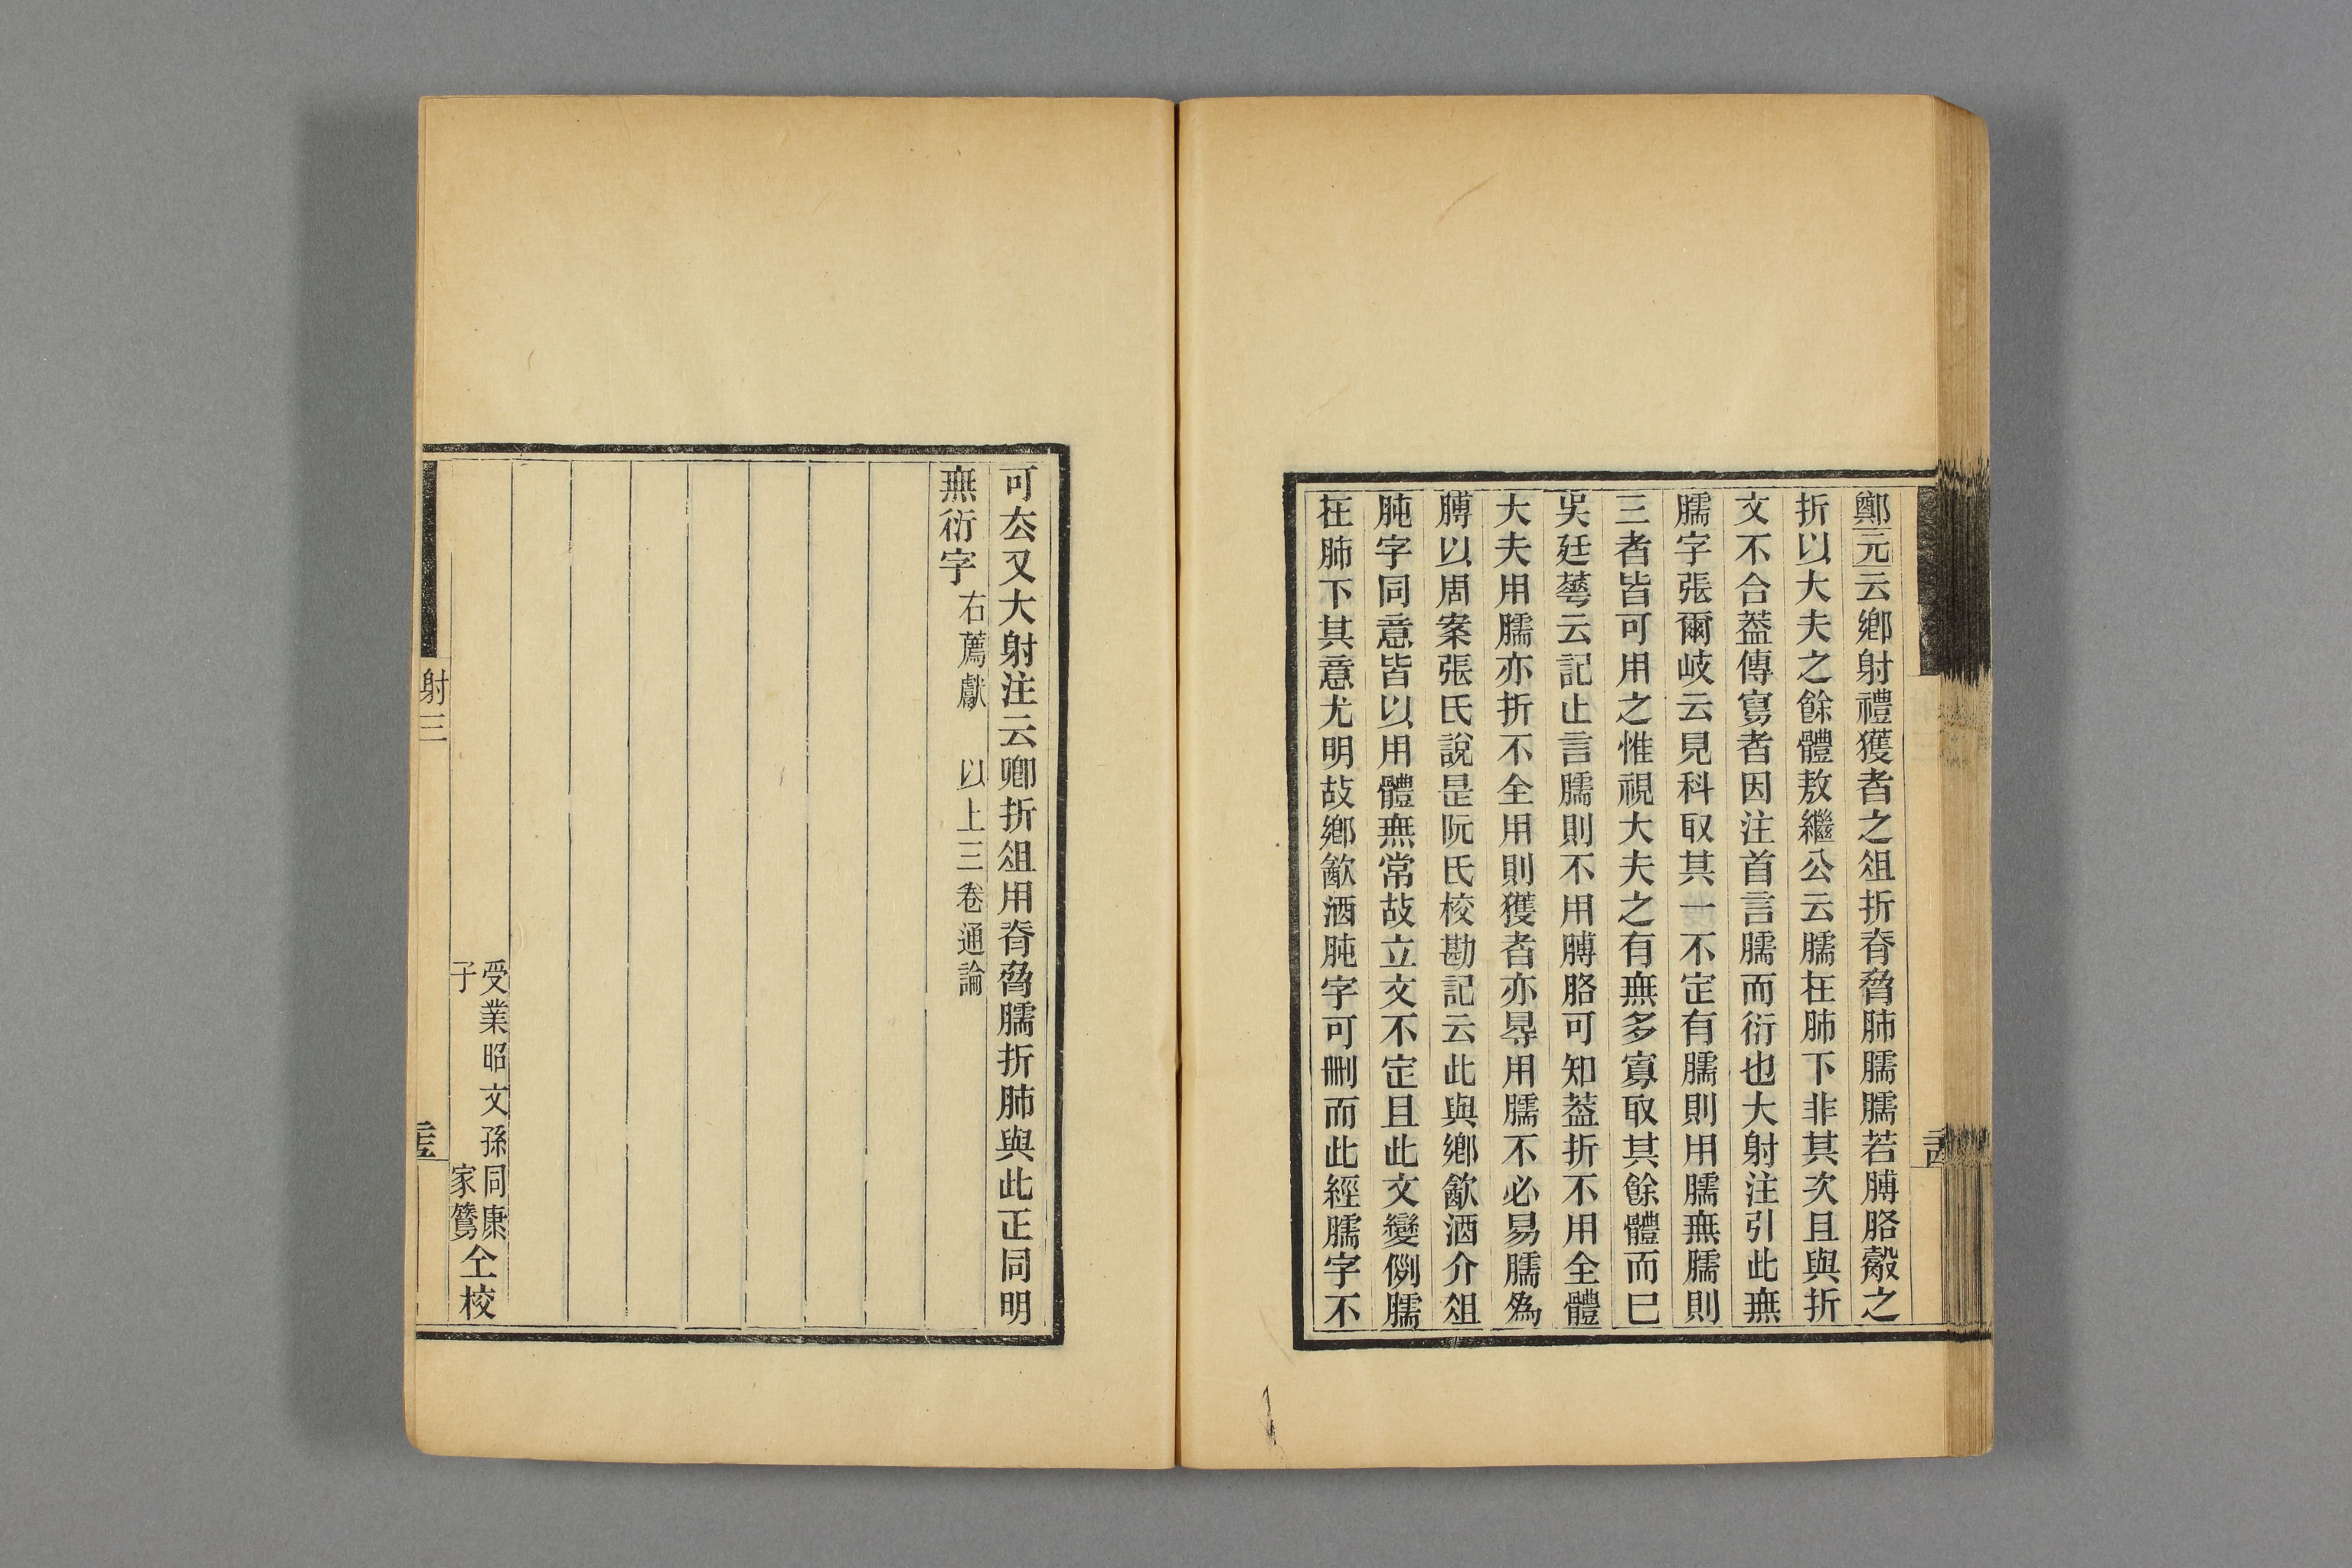 鄭元云鄉射禮獲者之俎折脊脅肺臑臑若膊胳觳之
折以大夫之餘體敖繼公云臑在肺下非其次且與折
文不合葢傳寫者因注首言臑而衍也大射注引此無
臑字張爾岐云見科取其一不定有臑則用臑無臑則
三者皆可用之惟視大夫之有無多寡取其餘體而已
吳廷華云記止言臑則不用膊胳可知葢折不用全體
大夫用臑亦折不全用則獲者亦㝵用臑不必易臑爲
膊以周案張氏說是阮氏校勘記云此與鄉歙酒介俎
肫字同意皆以用體無常故立文不定且此文變例臑
在肺下其意尤明故鄉歙酒肫字可刪而此經臑字不
可去又大射注云卿折俎用脊脅臑折肺與此正同明
無衍字 右薦獻 以上三卷通論
受業昭文孫同康
子 家鷟 仝校
射三